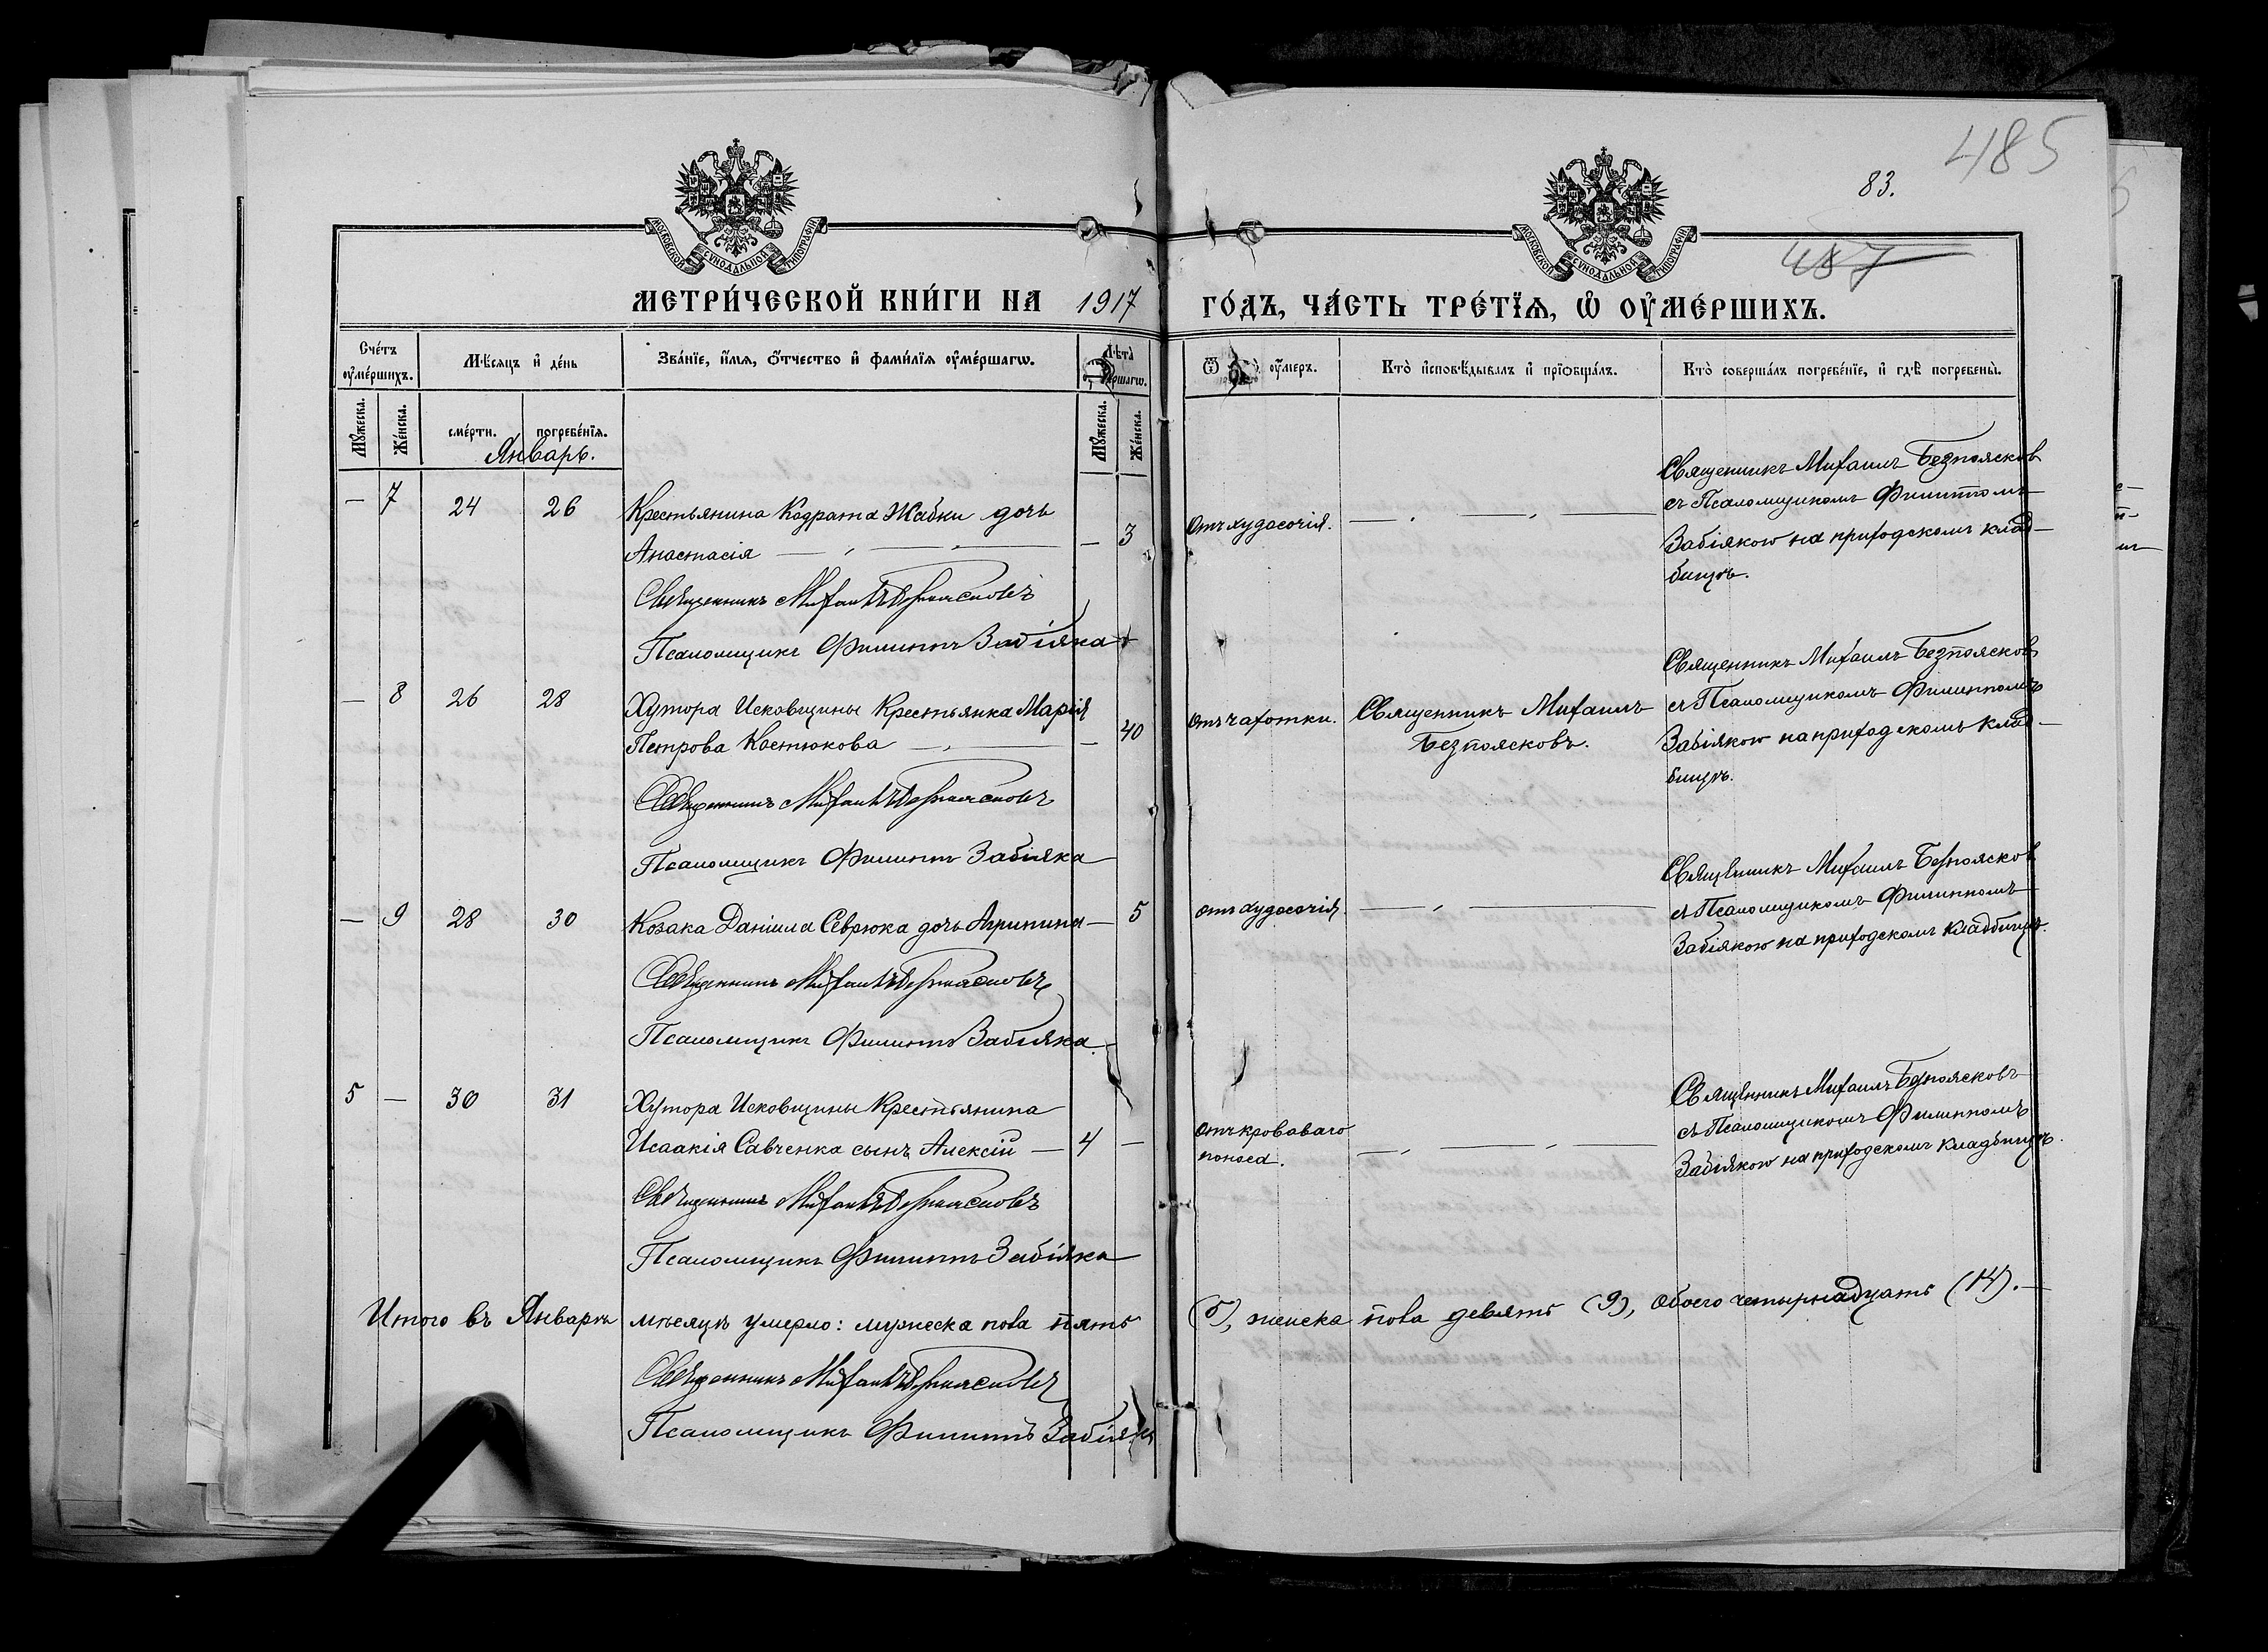 485
83.
487
МОСКОВСКОЙ СѴНОДАЛЬНОЙ ТИПОГРАФІИ
МОСКОВСКОЙ СѴНОДАЛЬНОЙ ТИПОГРАФІИ
МЕТРИ́ЧЕСКОЙ КНИ́ГИ НА 1917 ГО́ДЪ, ЧА́СТЬ ТРЕ́ТЇѦ, Ѡ҆ ОУ҆МЕ́РШИХЪ.
Сче́тъ оу҆ме́ршихъ.
Мѣ́сяцъ и҆ де́нь
Зва́нїе, и҆́мѧ, ѻ҆́тчество и҆ фами́лїѧ оу҆ме́ршагѡ.
Лѣ́та
оу҆́меръ.
Кто̀ и҆сповѣ́дывалъ и҆ прїѡбща́лъ.
Кто̀ соверша́лъ погребе́нїе, и҆ гдѣ̀ погребены̀.
Мꙋ́жеска.
Же́нска.
сме́рти.
погребе́нїѧ.
Мꙋ́жеска.
Же́нска.
Январь.
— 7 24 26 Крестьянина Кодрата Жабки дочь
Анастасія — 3
Священникъ Михаилъ Безпоясковъ
Псаломщикъ Филиппъ Забіяка
Отъ худосочія.
Священникъ Михаилъ Безпоясков
съ Псаломщикомъ Филиппомъ
Забіякою на приходскомъ клад-
бищѣ.
— 8 26 28 Хутора Исковщины Крестьянка Марія
Петрова Костюкова — 40
Священникъ Михаилъ Безпоясковъ
Псаломщикъ Филиппъ Забіяка
Отъ чахотки.
Священникъ Михаилъ
Безпоясковъ.
Священникъ Михаилъ Безпоясков
съ Псаломщикомъ Филиппомъ
Забіякою на приходскомъ клад-
бищѣ.
— 9 28 30 Козака Даніила Севрюка дочь Агрипина — 5
Священникъ Михаилъ Безпоясковъ
Псаломщикъ Филиппъ Забіяка.
Отъ худосочія.
Священникъ Михаилъ Безпоясков
съ Псаломщикомъ Филиппомъ
Забіякою на приходскомъ кладбищѣ.
5 — 30 31 Хутора Исковщины Крестьянина
Исаакія Савченка сынъ Алексій — 4 —
Священникъ Михаилъ Безпоясковъ
Псаломщикъ Филиппъ Забіяка
Отъ кроваваго
поноса.
Священникъ Михаилъ Безпоясковъ
съ Псаломщикомъ Филиппомъ
Забіякою на приходскомъ кладбищѣ.
Итого въ Январѣ мѣсяцѣ умерло: мужеска пола пять (5), женска пола девять (9), обоего четырнадцать (14).—
Священникъ Михаилъ Безпоясковъ
Псаломщикъ Филиппъ Забіяка